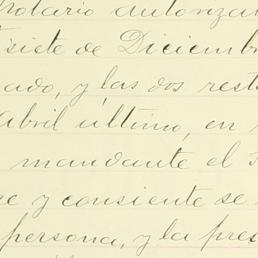 Notario autoriza
siete de Diciembr
ado, y las dos rest
Abril último, en
mandante el
e y consiente se
persona, y la pres